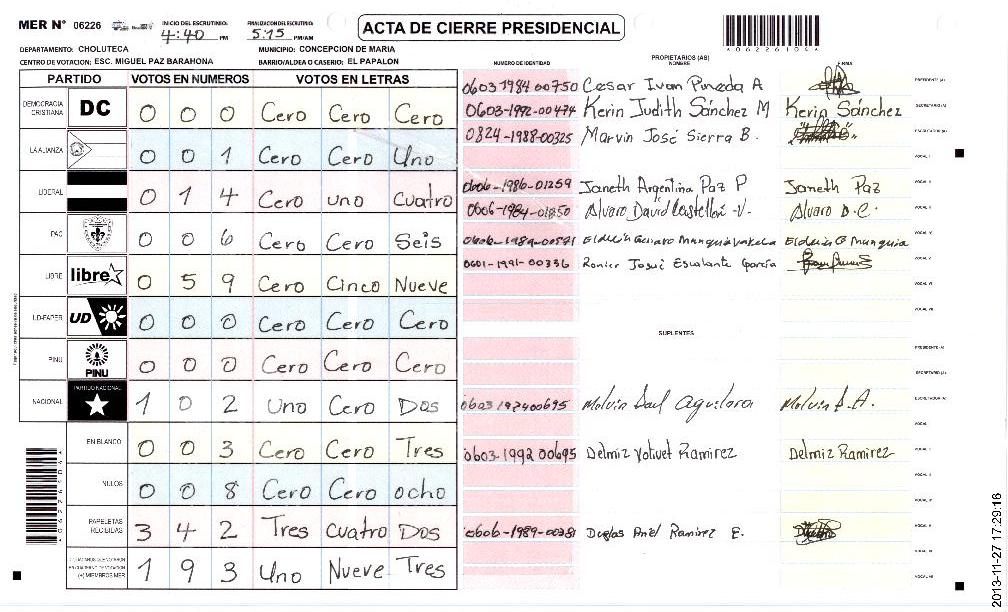 MER N° 06226
INICIO DEL ESCRUTINIO: 4:40 PM
FINALIZACION DEL ESCRUTINIO: 5:15 PM/AM
ACTA DE CIERRE PRESIDENCIAL
06226104
DEPARTAMENTO: CHOLUTECA
MUNICIPIO: CONCEPCION DE MARIA
CENTRO DE VOTACION: ESC. MIGUEL PAZ BARAHONA
BARRIO/ALDEA O CASERIO: EL PAPALON
PARTIDO VOTOS EN NUMEROS VOTOS EN LETRAS
DEMOCRACIA CRISTIANA DC 0 0 0 Cero Cero Cero
LA ALIANZA 0 0 1 Cero Cero Uno
LIBERAL 0 1 4 Cero uno Cuatro
PAC 0 0 6 Cero Cero Seis
LIBRE libre 0 5 9 Cero Cinco Nueve
UD-FAPER UD 0 0 0 Cero Cero Cero
PINU PINU 0 0 0 Cero Cero Cero
NACIONAL PARTIDO NACIONAL 1 0 2 Uno Cero Dos
EN BLANCO 0 0 3 Cero Cero Tres
NULOS 0 0 8 Cero Cero ocho
PAPELETAS RECIBIDAS 3 4 2 Tres cuatro Dos
(+) MIEMBROS MER 1 9 3 Uno Nueve Tres
NUMERO DE IDENTIDAD
PROPIETARIOS (AS)
NOMBRE
FIRMA
0603 1984 00750 Cesar Ivan Pineda A PRESIDENTE (A)
0603-1992-00474 Kerin Judith Sánchez M Kerin Sánchez SECRETARIO (A)
0824-1988-00325 Marvin José Sierra B. ESCRUTADOR (A)
VOCAL I
0606-1986-01259 Janeth Argentina Paz P Janeth Paz VOCAL II
0606-1984-01850 Alvaro David -V. Alvaro D.C.
0606-1989-00571 Munguia Munguia VOCAL IV
0601-1991-00336 Ronier Josué Escalante García VOCAL V
VOCAL VI
VOCAL VII
SUPLENTES
PRESIDENTE (A)
SECRETARIO (A)
Melvin Saul Aguilera Melvin S.A. ESCRUTADOR (A)
VOCAL I
0603-1992 00695 Delmiz Yolivet Ramirez Delmiz Ramirez
0606-1989-00381 Ramirez E.
VOCAL VII
2013-11-27 17:29:16